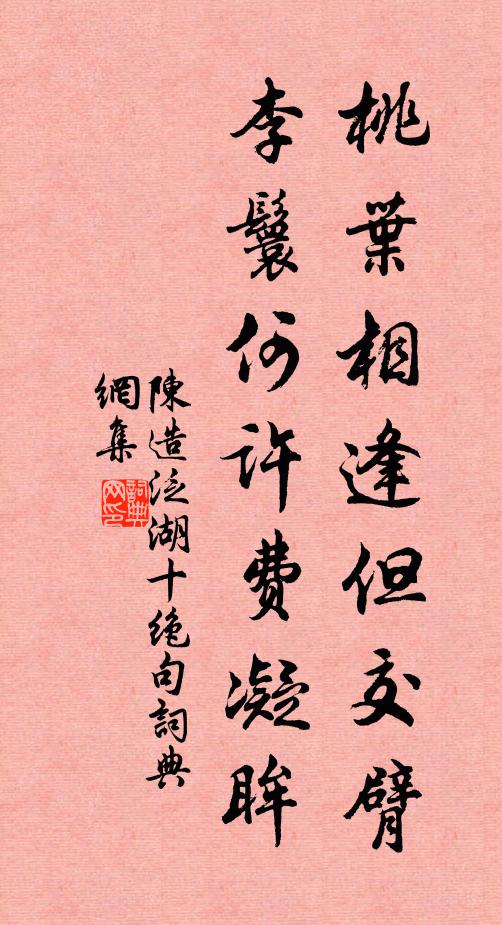 桃葉相逢但交臂
李鬟何許費凝眸
陳造泛湖十絶句詞典
網集
詞典網印